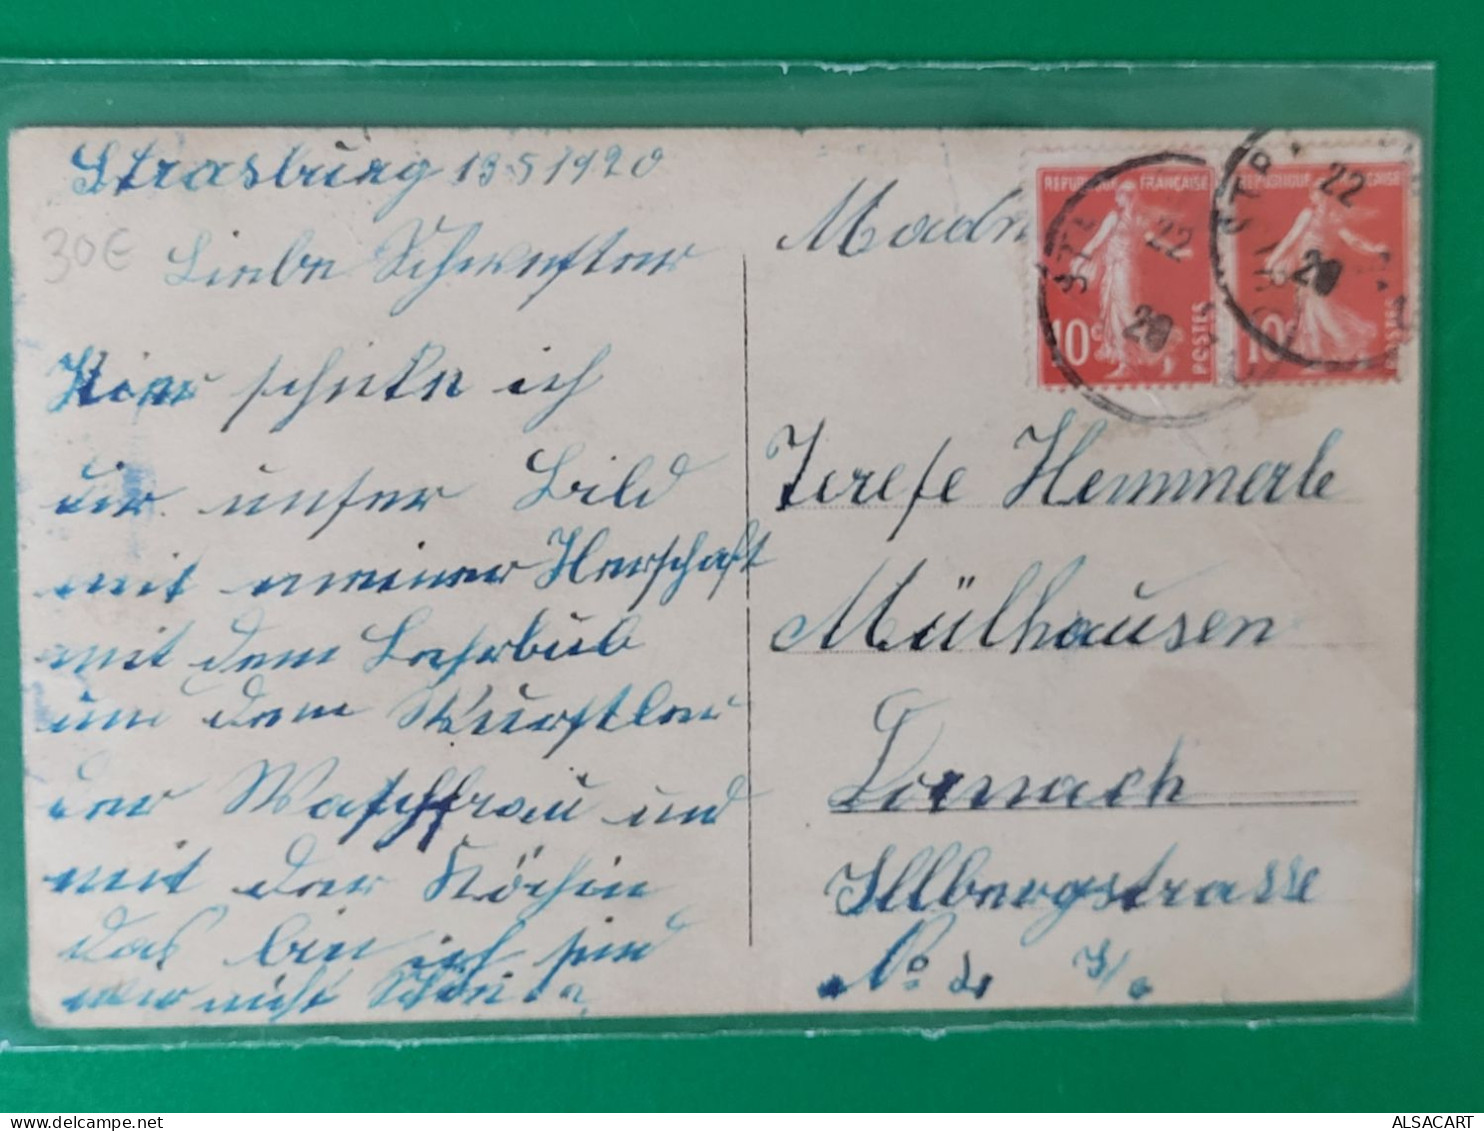 Strasburg 13 5 1920
30€
Liebe Schwester
Hier schicke ich
dir unser Bild
mit meiner Herschaft
mit dem Lehrbub
un dem Wurstler
der Waschfrau und
mit der Köchin
das bin ich sind
wir nicht Schön
Madm
REPUBLIQUE FRANÇAISE
10c POSTES
22
20
REPUBLIQUE FRANÇAISE
10c POSTES
STR
22
20
Terese Hemmerle
Mülhausen
Dornach
Illbergstrasse
No
ALSACART